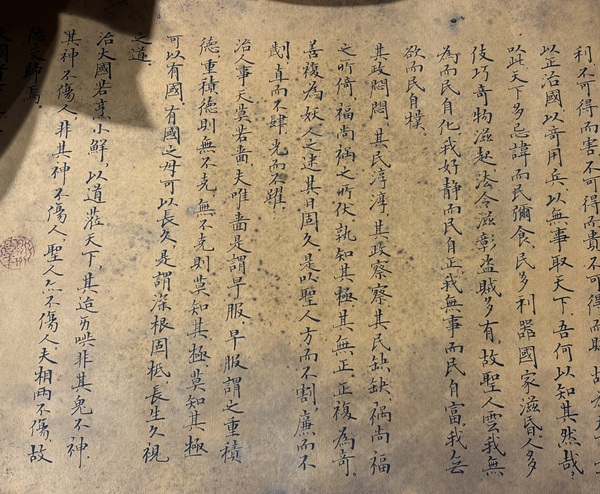 利,不可得而害不可得而貴不可得而賤,故為天下
以正治國,以奇用兵,以無事取天下,吾何以知其然哉,
以此天下多忌諱而民彌食,民多利器國家滋昏人多
伎巧奇物滋起,法令滋彰盜賊多有,故聖人雲我無
為而民自化,我好静而民自正,我無事而民自富,我無
欲而民自樸.
其政悶悶,其民淳淳,其政察察其民缺缺,禍尚福
之所倚,福尚禍之所伏,孰知其極其無正,正複為奇,
善複為妖人之迷其日固久是以聖人方而不割廉而不
劌,直而不肆光而不耀.
治人事天莫若嗇,夫唯嗇是謂早服,早服謂之重積
德重積德則無不克,無不克則莫知其極莫知其極
可以有國,有國之母可以長久,是謂深根固柢長生久視
之道.
治大國若烹小鮮,以道蒞天下,其 非其鬼不神,
其神不傷人,非其神不傷人,聖人亦不傷人,夫相兩不傷,故
德交歸焉.
大國